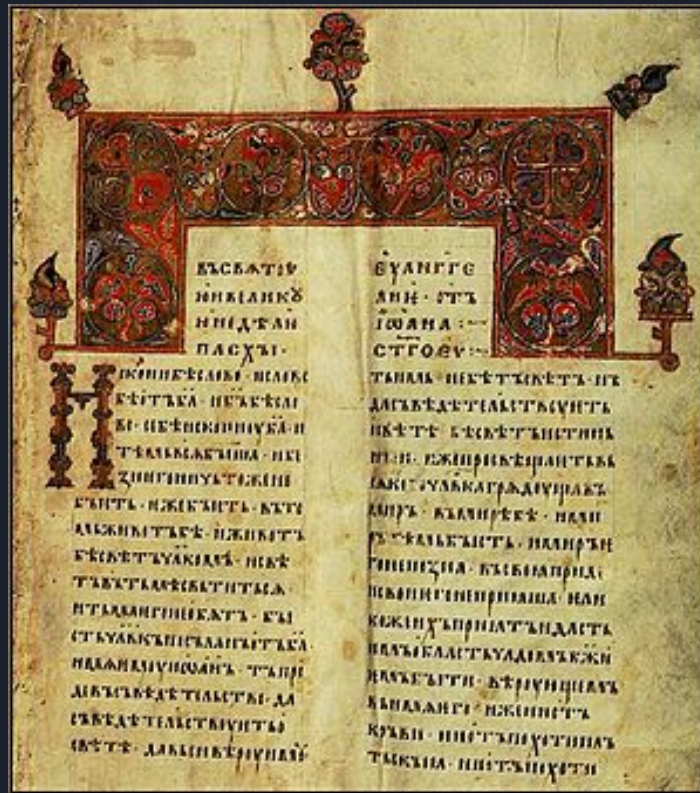 въсвѧтѹ
ѭивеликѹ
ѭнедѣлѭ
пасхꙑ·
искони бѣ слово · и слово
бѣ отъ б҃а · и б҃ъ бѣ сло
во · се бѣ искони ѹ б҃а · и
тѣмь вьсѧ бꙑша · и бе
бꙑсть · ѥже бꙑсть · въ то
мь животъ бѣ · и животъ
бѣ свѣтъ ч҃лкомъ · и свѣ
тъ въ тьмѣ свьтитьсѧ ·
и тьма ѥго не обѧтъ · бꙑ
сть ч҃лкъ посъланъ отъ б҃а ·
имѧ ѥмѹ иоанъ · тъ при
де въ съвѣдѣтельство · да
съвѣдѣтельствѹѥть о
свѣтѣ · да вьси вѣрѹ имѹть
еѵангге
лиѥ · отъ
іѡана :~
стг҃о еѵ :~
тъ имь · не бѣ тъ свѣтъ · нъ
да съвѣдѣтельствѹѥть
о свѣтѣ · бѣ свѣтъ истинь
нꙑи · иже просвѣщаѥть вь
всего ч҃лка грѧдѹща въ
миръ · въ мирѣ бѣ · и ми
ръ тѣмь бꙑсть · и миръ ѥ
го не позна · въ своꙗ приде
и свои ѥго не приꙗша · ѥли
ко же ихъ приꙗтъ и дасть
имъ область чадомъ б҃жи
ѥмъ бꙑти · вѣрѹющемъ
въ имѧ ѥго · иже ни отъ
кръви · ни отъ похоти пль
тьскꙑ · ни отъ похоти